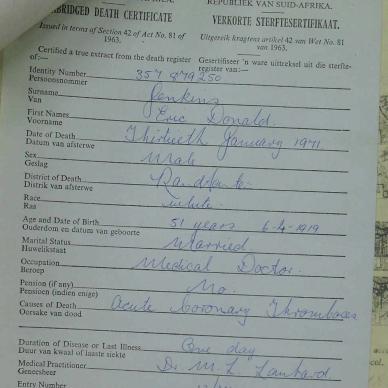 REPUBLIEK VAN SUID-AFRIKA.
ABRIDGED DEATH CERTIFICATE
VERKORTE STERFTESERTIFIKAAT.
Issued in terms of Section 42 of Act No. 81 of 1963.
Uitgereik kragtens artikel 42 van Wet No. 81 van 1963.
Certified a true extract from the death register of:—
Gesertifiseer 'n ware uittreksel uit die sterfte-register van:—
Identity Number 357 879250
Persoonsnommer
Surname Jenkins
Van
First Names Eric Donald.
Voorname
Date of Death Thirtieth January 1971
Datum van afsterwe
Sex Male
Geslag
District of Death
Distrik van afsterwe
Race White
Ras
Age and Date of Birth 51 years 6-4-1919
Ouderdom en datum van geboorte
Marital Status Married
Huwelikstaat
Occupation Medical Doctor.
Beroep
Pension (if any) No.
Pensioen (indien enige)
Causes of Death Acute Coronary Thrombosis
Oorsake van dood
Duration of Disease or Last Illness One day
Duur van kwaal of laaste siekte
Medical Practitioner Dr M. L.
Geneesheer
Entry Number